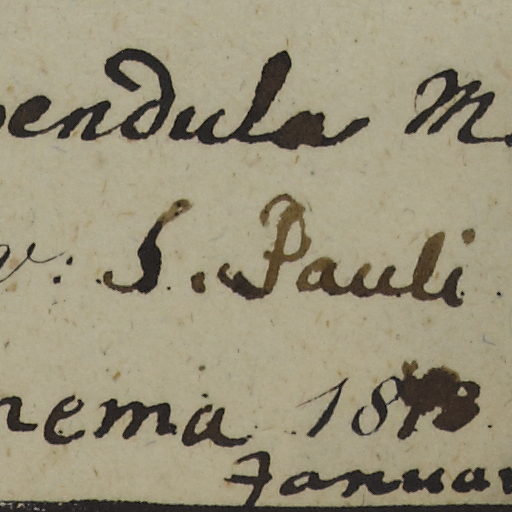 pendula M
v: S. Pauli
nema 18
Januar